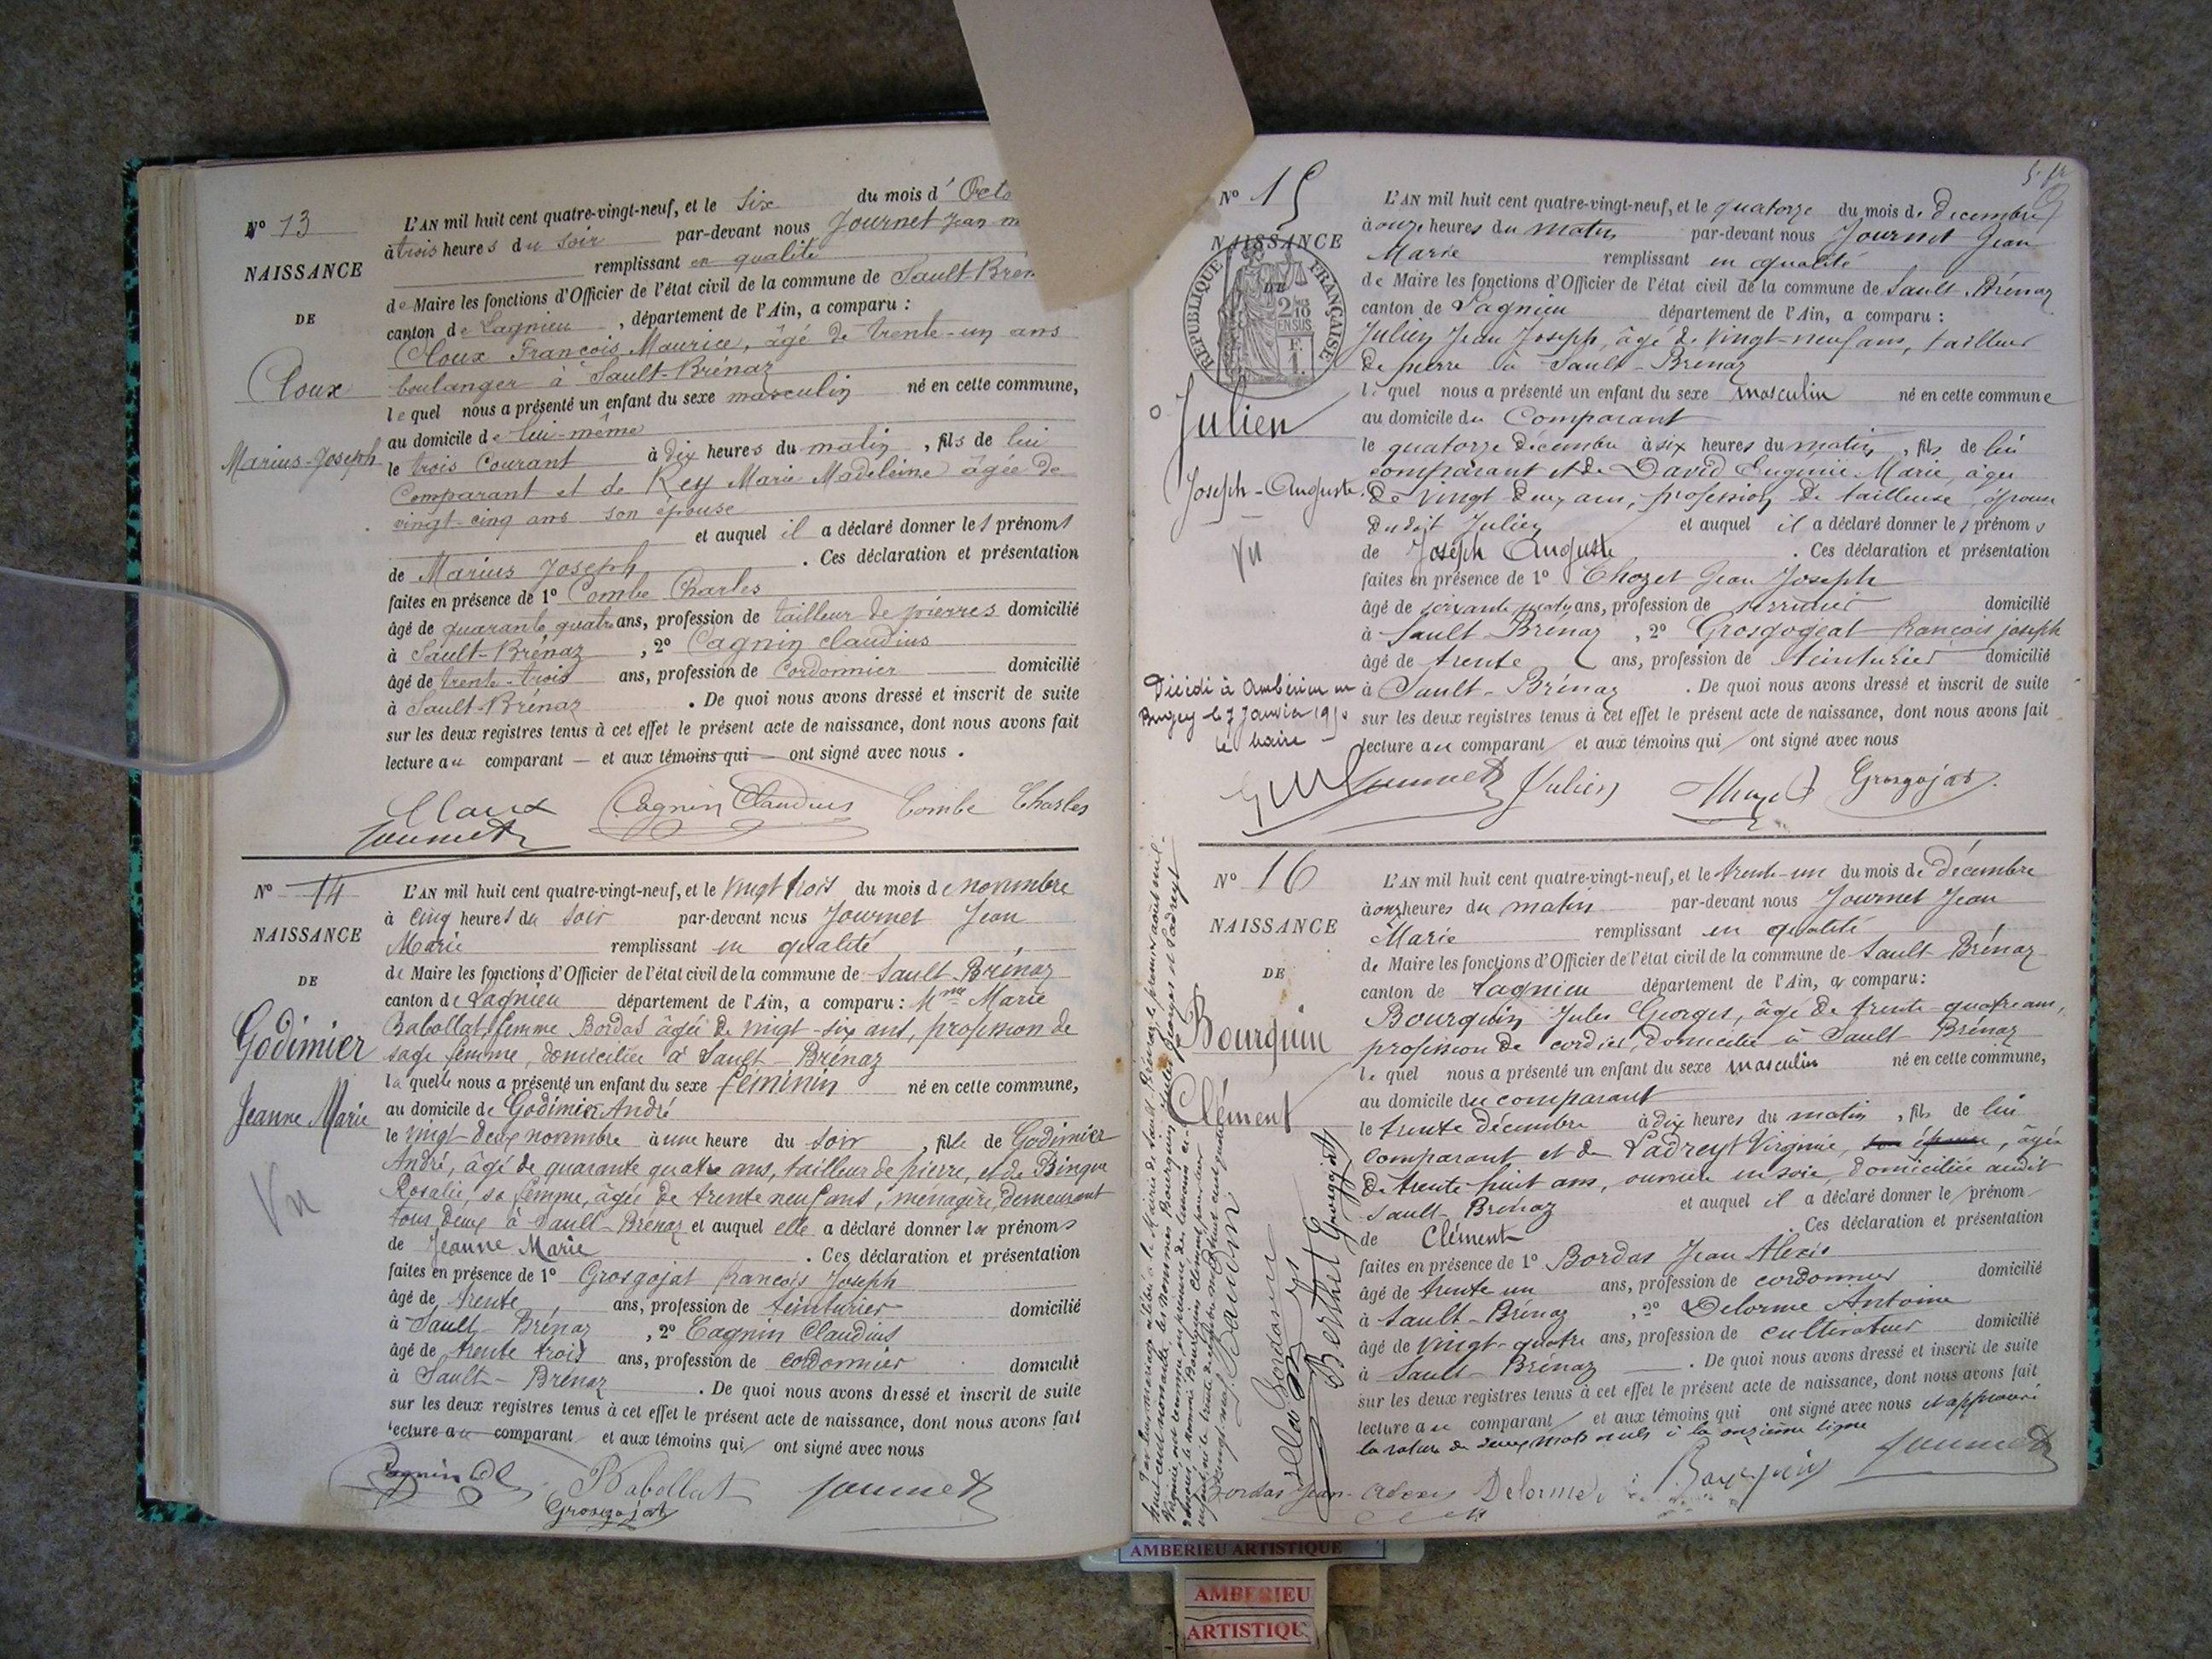 N° 13
NAISSANCE
DE
Cloux
Marius-Joseph
L'AN mil huit cent quatre-vingt-neuf, et le Six du mois d' Octo
à trois heures du soir par-devant nous Journet Jean M
remplissant en qualité
de Maire les fonctions d'Officier de l'état civil de la commune de Sault-Brén
canton de Lagnieu, département de l'Ain, a comparu :
Cloux François Maurice, âgé de trente-un ans
boulanger à Sault-Brénaz
lequel nous a présenté un enfant du sexe masculin né en cette commune,
au domicile de lui-même
le trois Courant à dix heures du matin, fils de lui
Comparant et de Rey Marie Madeleine âgée de
vingt-cinq ans son épouse
et auquel il a déclaré donner les prénoms
de Marius Joseph. Ces déclaration et présentation
faites en présence de 1° Combe Charles
âgé de quarante quatre ans, profession de tailleur de pierres domicilié
à Sault-Brénaz, 2° Cagnin Claudius
âgé de trente-trois ans, profession de Cordonnier domicilié
à Sault-Brénaz. De quoi nous avons dressé et inscrit de suite
sur les deux registres tenus à cet effet le présent acte de naissance, dont nous avons fait
lecture au comparant et aux témoins qui ont signé avec nous.
Cloux Cagnin Claudius Combe Charles
Journet
N° 14
NAISSANCE
DE
Godimier
Jeanne Marie
Vu
L'AN mil huit cent quatre-vingt-neuf, et le vingt trois du mois de novembre
à cinq heures du soir par-devant nous Journet Jean
Marie remplissant en qualité
de Maire les fonctions d'Officier de l'état civil de la commune de Sault-Brénaz
canton de Lagnieu département de l'Ain, a comparu : Mme Marie
Babollat femme Bordas âgée de vingt-six ans, profession de
sage femme, domiciliée à Sault-Brénaz
laquelle nous a présenté un enfant du sexe féminin né en cette commune,
au domicile de Godimier André
le vingt-deux novembre à une heure du soir, fille de Godimier
André, âgé de quarante quatre ans, tailleur de pierre, et de Bingue
Rosalie, sa femme, âgée de trente neuf ans, ménagère demeurant
tous deux à Sault-Brénaz et auquel elle a déclaré donner les prénoms
de Jeanne Marie. Ces déclaration et présentation
faites en présence de 1° Grosgojat françois Joseph
âgé de trente ans, profession de teinturier domicilié
à Sault-Brénaz, 2° Cagnin Claudius
âgé de trente trois ans, profession de cordonnier domicilié
à Sault-Brénaz. De quoi nous avons dressé et inscrit de suite
sur les deux registres tenus à cet effet le présent acte de naissance, dont nous avons fait
lecture au comparant et aux témoins qui ont signé avec nous
Cagnin Cl Babollat Journet
Grosgojat
N° 15
NAISSANCE
DE
RÉPUBLIQUE FRANÇAISE
2/10 EN SUS
F. 1.
Julien
Joseph-Auguste
Vu
L'AN mil huit cent quatre-vingt-neuf, et le quatorze du mois de décembre
à onze heures du matin par-devant nous Journet Jean
Marie remplissant en qualité
de Maire les fonctions d'Officier de l'état civil de la commune de Sault-Brénaz
canton de Lagnieu département de l'Ain, a comparu :
Julien Jean Joseph, âgé de vingt-neuf ans, tailleur
de pierre à Sault-Brénaz
lequel nous a présenté un enfant du sexe masculin né en cette commune
au domicile du Comparant
le quatorze décembre à six heures du matin, fils de lui
comparant et de David Eugénie Marie, âgée
de vingt deux ans, profession de tailleuse, épouse
dudit Julien et auquel il a déclaré donner les prénoms
de Joseph Auguste. Ces déclaration et présentation
faites en présence de 1° Chozet Jean Joseph
âgé de soixante ans, profession de serrurier domicilié
à Sault Brénaz, 2° Grosgogeat françois joseph
âgé de trente ans, profession de teinturier domicilié
à Sault-Brénaz. De quoi nous avons dressé et inscrit de suite
sur les deux registres tenus à cet effet le présent acte de naissance, dont nous avons fait
lecture au comparant et aux témoins qui ont signé avec nous
Décédé à Ambérieu en
Bugey le 7 Janvier 19
le Maire
Journet Julien Grosgojat
N° 16
NAISSANCE
DE
Bourguin
Clément
L'AN mil huit cent quatre-vingt-neuf, et le trente-un du mois de décembre
à onze heures du matin par-devant nous Journet Jean
Marie remplissant en qualité
de Maire les fonctions d'Officier de l'état civil de la commune de Sault-Brénaz
canton de Lagnieu département de l'Ain, a comparu :
Bourguin Jules Georges, âgé de trente quatre ans,
profession de cordier, domicilié à Sault Brénaz
lequel nous a présenté un enfant du sexe masculin né en cette commune,
au domicile du comparant
le trente décembre à dix heures du matin, fils de lui
comparant et de Ladreyt Virginie, son épouse, âgée
de trente huit ans, ouvrière en soie, domiciliée audit
Sault-Brénaz et auquel il a déclaré donner le prénom
de Clément. Ces déclaration et présentation
faites en présence de 1° Bordas Jean Alexis
âgé de trente un ans, profession de cordonnier domicilié
à Sault-Brénaz, 2° Delorme Antoine
âgé de vingt-quatre ans, profession de cultivateur domicilié
à Sault-Brénaz. De quoi nous avons dressé et inscrit de suite
sur les deux registres tenus à cet effet le présent acte de naissance, dont nous avons fait
lecture au comparant et aux témoins qui ont signé avec nous et approuvé
la rature de deux mots nuls à la onzième ligne
Bordas Jean-Alexis Delorme Bourguin Journet
Berthet Grosgojat
AMBERIEU ARTISTIQUE
AMBERIEU
ARTISTIQU